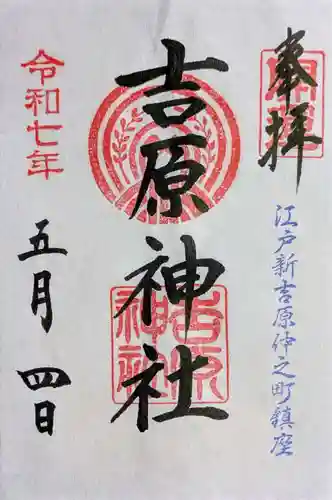 奉拝
江戸新吉原仲之町鎮座
吉原神社
吉原神社
令和七年
五月四日